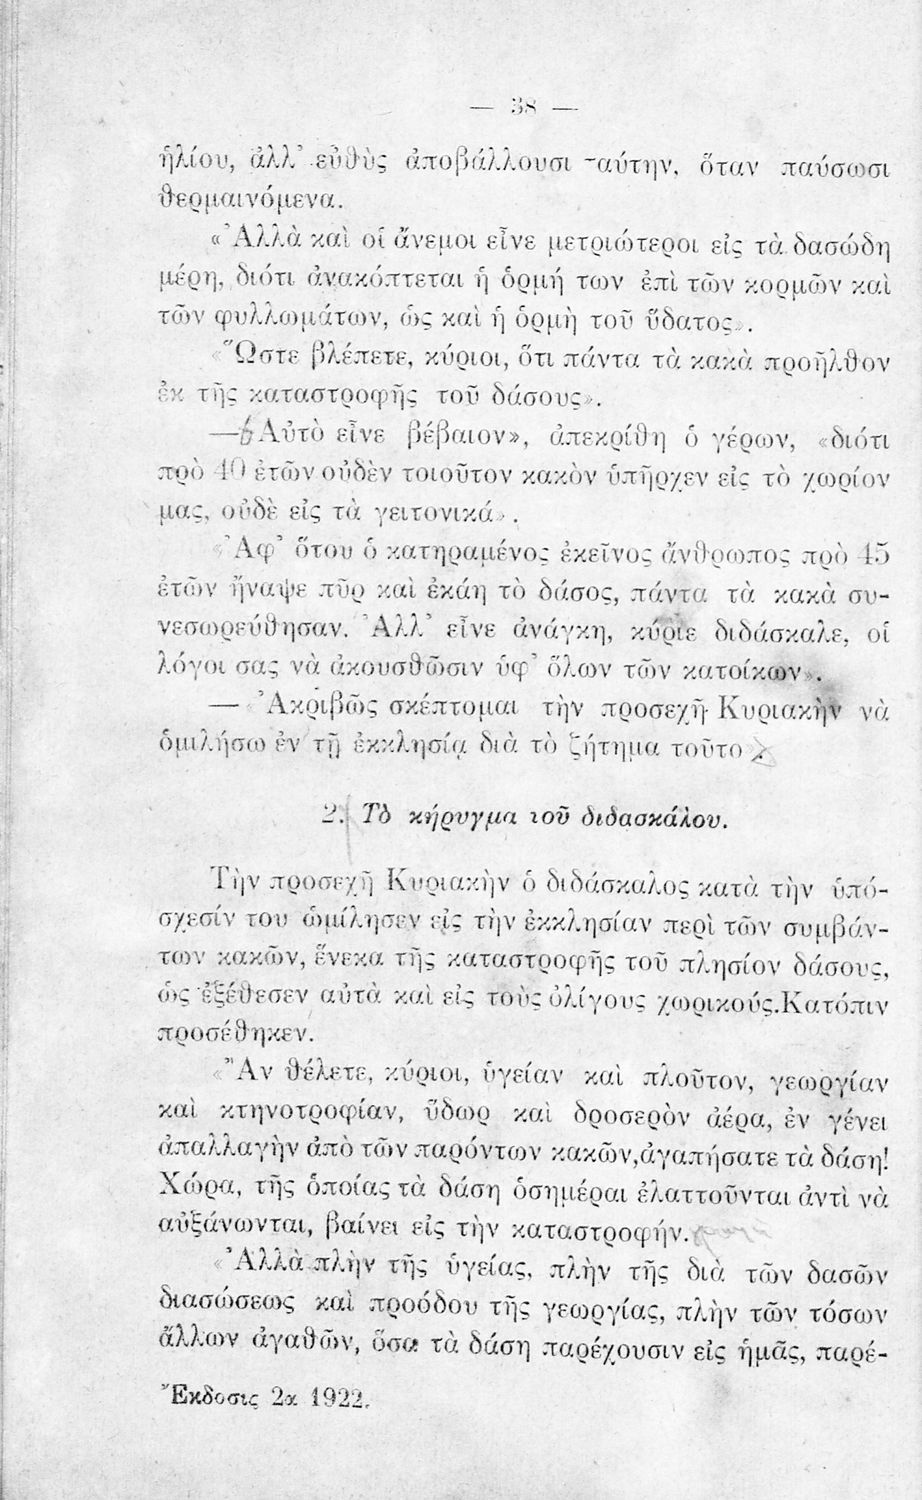 — 38 —
ἡλίου, ἀλλ’ εὐθὺς ἀποβάλλουσι αὐτην, ὅταν παύσωσι
θερμαινόμενα.
«Ἀλλὰ καὶ οἱ ἄνεμοι εἶνε μετριώτεροι εἰς τὰ δασώδη
μέρη, διότι ἀνακόπτεται ἡ ὁρμή των ἐπὶ τῶν κορμῶν καὶ
τῶν φυλλωμάτων, ὡς καὶ ἡ ὁρμὴ τοῦ ὕδατος».
«Ὥστε βλέπετε, κύριοι, ὅτι πάντα τὰ κακὰ προῆλθον
ἐκ τῆς καταστροφῆς τοῦ δάσους».
—«Αὐτὸ εἶνε βέβαιον», ἀπεκρίθη ὁ γέρων, «διότι
πρὸ 40 ἐτῶν οὐδὲν τοιοῦτον κακὸν ὑπῆρχεν εἰς τὸ χωρίον
μας, οὐδὲ εἰς τὰ γειτονικά».
«Ἀφ’ ὅτου ὁ κατηραμένος ἐκεῖνος ἄνθρωπος πρὸ 45
ἐτῶν ἤναψε πῦρ καὶ ἐκάη τὸ δάσος, πάντα τὰ κακὰ συ-
νεσωρεύθησαν. Ἀλλ’ εἶνε ἀνάγκη, κύριε διδάσκαλε, οἱ
λόγοι σας νὰ ἀκουσθῶσιν ὑφ’ ὅλων τῶν κατοίκων».
— «Ἀκριβῶς σκέπτομαι τὴν προσεχῆ Κυριακὴν νὰ
ὁμιλήσω ἐν τῇ ἐκκλησίᾳ διὰ τὸ ζήτημα τοῦτο».
2. Τὸ κήρυγμα τοῦ διδασκάλου.
Τὴν προσεχῆ Κυριακὴν ὁ διδάσκαλος κατὰ τὴν ὑπό-
σχεσίν του ὡμίλησεν εἰς τὴν ἐκκλησίαν περὶ τῶν συμβάν-
των κακῶν, ἕνεκα τῆς καταστροφῆς τοῦ πλησίον δάσους,
ὡς ἐξέθεσεν αὐτὰ καὶ εἰς τοὺς ὀλίγους χωρικούς.Κατόπιν
προσέθηκεν.
«Ἂν θέλετε, κύριοι, ὑγείαν καὶ πλοῦτον, γεωργίαν
καὶ κτηνοτροφίαν, ὕδωρ καὶ δροσερὸν ἀέρα, ἐν γένει
ἀπαλλαγὴν ἀπὸ τῶν παρόντων κακῶν,ἀγαπήσατε τὰ δάση!
Χώρα, τῆς ὁποίας τὰ δάση ὁσημέραι ἐλαττοῦνται ἀντὶ νὰ
αὐξάνωνται, βαίνει εἰς τὴν καταστροφήν.
«Ἀλλὰ πλὴν τῆς ὑγείας, πλὴν τῆς διὰ τῶν δασῶν
διασώσεως καὶ προόδου τῆς γεωργίας, πλὴν τῶν τόσων
ἄλλων ἀγαθῶν, ὅσα τὰ δάση παρέχουσιν εἰς ἡμᾶς, παρέ-
Ἔκδοσις 2α 1922.